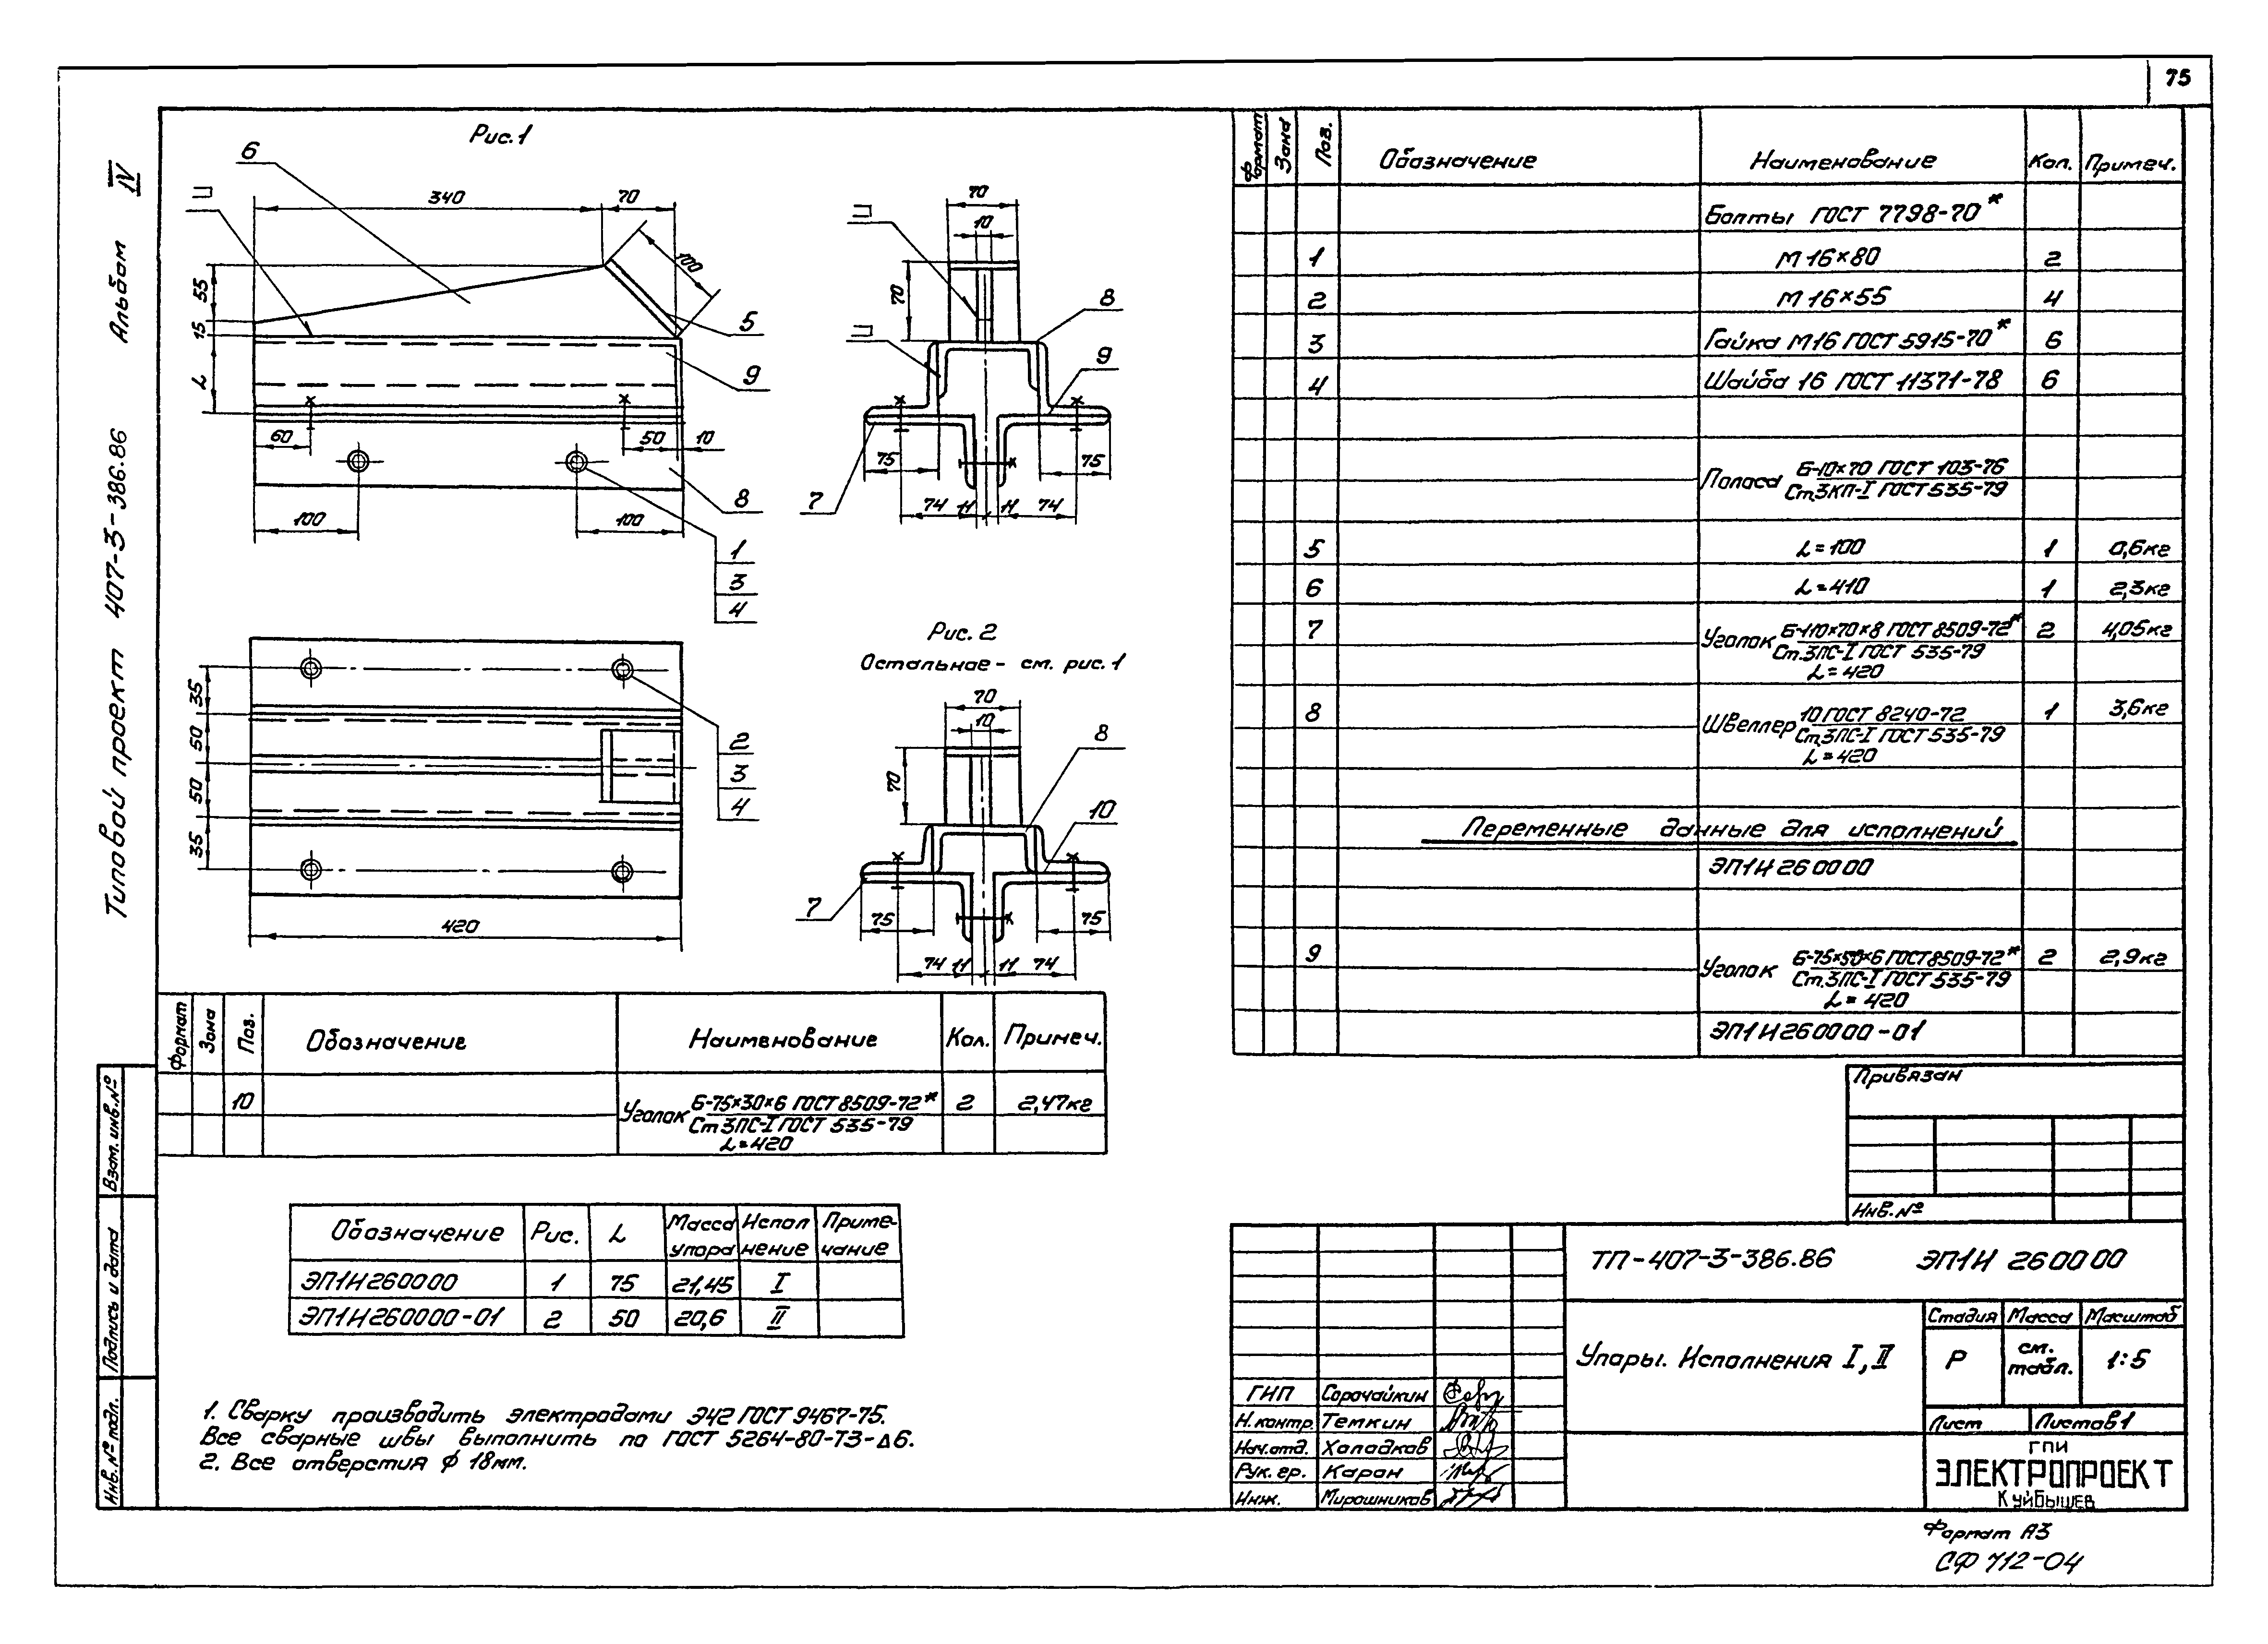 75
Типовой проект 407-3-386.86 Альбом IV
Рис.1
6
340
70
100
55
15
L
5
9
60
50
10
8
100
100
1
3
4
70
10
70
8
9
75
75
7
74
11
11
74
35
50
50
35
2
3
4
420
Рис. 2
Остальное - см. рис. 1
70
10
70
8
10
7
75
75
74
11
11
74
Формат
Зона
Поз.
Обозначение
Наименование
Кол.
Примеч.
Болты ГОСТ 7798-70*
1 М16×80 2
2 М16×55 4
3 Гайка М16 ГОСТ 5915-70* 6
4 Шайба 16 ГОСТ 11371-78 6
Полоса Б-10×70 ГОСТ 103-76
Ст.3КП-I ГОСТ 535-79
5 L=100 1 0,6кг
6 L=410 1 2,3кг
7 Уголок Б-110×70×8 ГОСТ 8509-72* 2 4,05кг
Ст.3ПС-I ГОСТ 535-79
L=420
8 Швеллер 10 ГОСТ 8240-72 1 3,6кг
Ст.3ПС-I ГОСТ 535-79
L=420
Переменные данные для исполнений
ЭП1И260000
9 Уголок Б-75×50×6 ГОСТ 8509-72* 2 2,9кг
Ст.3ПС-I ГОСТ 535-79
L=420
ЭП1И260000-01
Формат
Зона
Поз.
Обозначение
Наименование
Кол.
Примеч.
10 Уголок Б-75×30×6 ГОСТ 8509-72* 2 2,47кг
Ст3ПС-I ГОСТ 535-79
L=420
Обозначение Рис. L Масса упора Исполнение Примечание
ЭП1И260000 1 75 21,45 I
ЭП1И260000-01 2 50 20,6 II
1. Сварку производить электродами Э42 ГОСТ 9467-75.
Все сварные швы выполнить по ГОСТ 5264-80-Т3-Δ6.
2. Все отверстия ϕ 18мм.
Взам. инв. №
Подпись и дата
Инв. № подл.
Привязан
Инв. №
ТП-407-3-386.86 ЭП1И 260000
Упоры. Исполнения I, II
Стадия Масса Масштаб
Р см. табл. 1:5
Лист Листов 1
ГИП Сорочайкин
Н.контр. Темкин
Нач.отд. Холодков
Рук. гр. Каран
Инж. Мирошников
ГПИ
ЭЛЕКТРОПРОЕКТ
Куйбышев
Формат А3
СФ 712-04